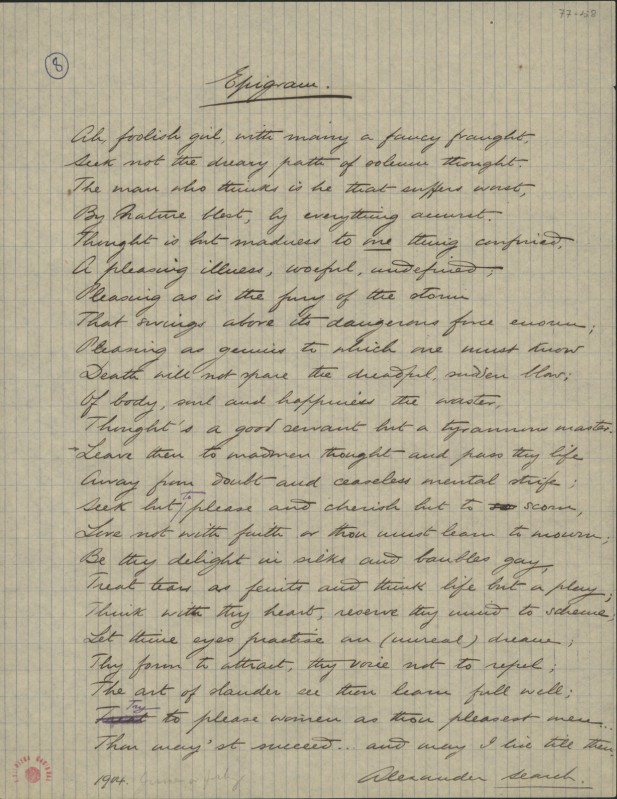 77-48
8
Epigram.
Ah, foolish girl, with many a fancy fraught,
Seek not the dreary path of solemn thought.
The man who thinks is he that suffers worst,
By Nature blest, by everything accurst.
Thought is but madness to one thing confined,
A pleasing illness, woeful, undefined;
Pleasing as is the fury of the storm
That swings above its dangerous force enorm;
Pleasing as genius to which one must know
Death will not spare the dreadful, sudden blow;
Of body, soul and happiness the waster,
Thought's a good servant but a tyrannous master.
Leave then to madmen thought and pass thy life
Away from doubt and ceaseless mental strife;
Seek but to please and cherish but to scorn,
Love not with faith or thou must learn to mourn;
Be thy delight in silks and baubles gay,
Treat tears as feints and think life but a play;
Think with thy heart, reserve thy mind to scheme;
Let thine eyes practise an (unreal) dream;
Thy form to attract, thy voice not to repel;
The art of slander see thou learn full well;
Try to please women as thou pleasest men..
Thou may'st succeed.. and may I live till then.
1904.
Alexander Search.